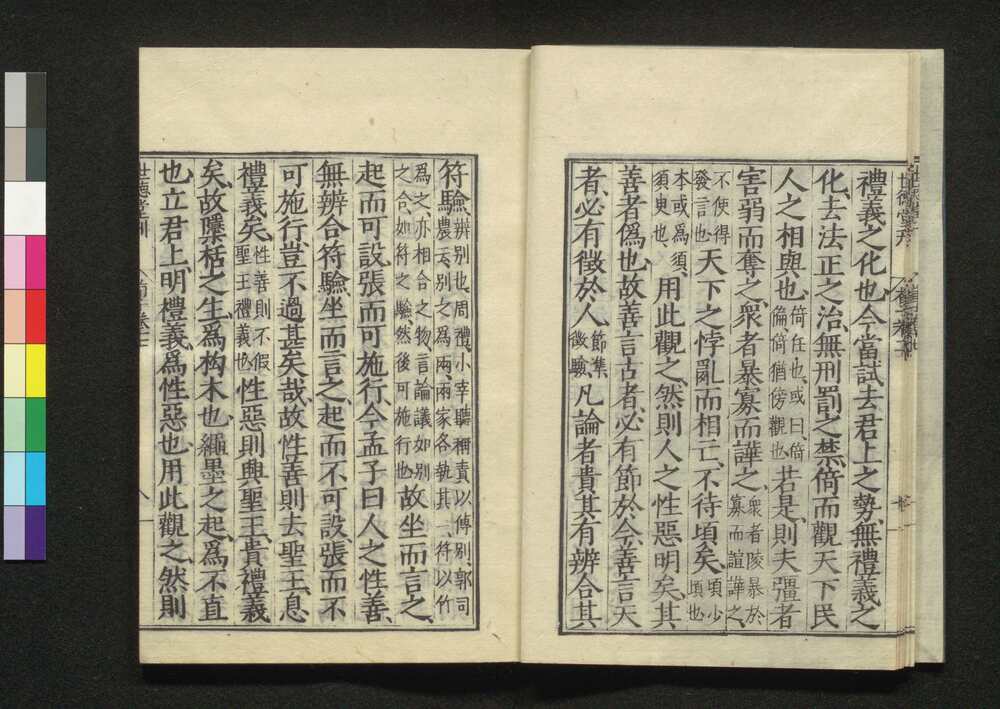 禮義之化也、今當試去君上之勢、無禮義之
化、去法正之治、無刑罰之禁、倚而觀天下民
人之相與也、倚任也、或曰、倚偏倚、猶傍觀也、若是、則夫彊者
害弱而奪之、衆者暴寡而譁之、衆者陵暴於寡而諠譁之、
不使得發言也、天下之悖亂而相亡、不待頃矣、頃少頃也
本或爲須、須臾也、用此觀之、然則人之性惡明矣、其
善者僞也、故善言古者、必有節於今、善言天
者、必有徵於人、節集徵驗、凡論者貴其有辨合其
符驗、辨別也、周禮小宰聽稱責以傅別、郭司農云、別之爲兩、兩家各執其一、符以竹
爲之、亦相合之物、言論議如別之合、如符之驗、然後可施行也、故坐而言之、
起而可設張而可施行、今孟子曰人之性善、
無辨合符驗、坐而言之、起而不可設張而不
可施行、豈不過甚矣哉、故性善則去聖王、息
禮義矣、性善則不假聖王禮義也、性惡則與聖王、貴禮義
矣、故檃栝之生、爲枸木也、繩墨之起、爲不直
也、立君上、明禮義、爲性惡也、用此觀之、然則
世德堂刊